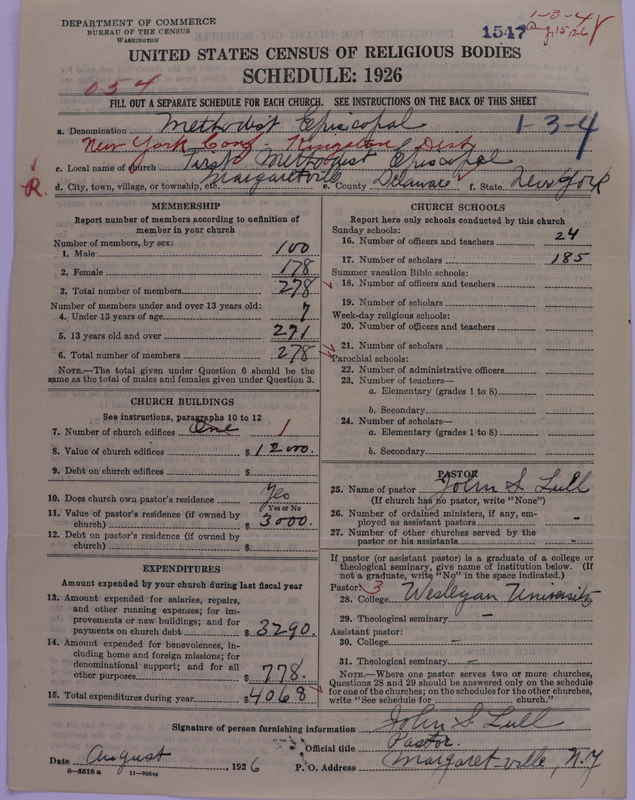 DEPARTMENT OF COMMERCE
BUREAU OF THE CENSUS
WASHINGTON
1547
1-3-4
Aug, 15, 26
UNITED STATES CENSUS OF RELIGIOUS BODIES
SCHEDULE: 1926
034
FILL OUT A SEPARATE SCHEDULE FOR EACH CHURCH. SEE INSTRUCTIONS ON THE BACK OF THIS SHEET
a. Denomination Methodist Episcopal
1-3-4
New York Cong - Kingston Dist
c. Local name of church First Methodist Episcopal
R.
d. City, town, village, or township, etc. Margaretville e. County Delaware f. State New York
MEMBERSHIP
Report number of members according to definition of
member in your church
Number of members, by sex:
1. Male 100
2. Female 178
3. Total number of members 278
Number of members under and over 13 years old:
4. Under 13 years of age 7
5. 13 years old and over 271
6. Total number of members 278
NOTE.—The total given under Question 6 should be the
same as the total of males and females given under Question 3.
CHURCH BUILDINGS
See instructions, paragraphs 10 to 12
7. Number of church edifices One 1
8. Value of church edifices $12000.
9. Debt on church edifices $
10. Does church own pastor's residence Yes
Yes or No
11. Value of pastor's residence (if owned by
church) $3000.
12. Debt on pastor's residence (if owned by
church) $
EXPENDITURES
Amount expended by your church during last fiscal year
13. Amount expended for salaries, repairs,
and other running expenses; for im-
provements or new buildings; and for
payments on church debt $3290.
14. Amount expended for benevolences, in-
cluding home and foreign missions; for
denominational support; and for all
other purposes $778.
15. Total expenditures during year $4068
CHURCH SCHOOLS
Report here only schools conducted by this church
Sunday schools:
16. Number of officers and teachers 24
17. Number of scholars 185
Summer vacation Bible schools:
18. Number of officers and teachers
19. Number of scholars
Week-day religious schools:
20. Number of officers and teachers
21. Number of scholars
Parochial schools:
22. Number of administrative officers
23. Number of teachers—
a. Elementary (grades 1 to 8)
b. Secondary
24. Number of scholars—
a. Elementary (grades 1 to 8)
b. Secondary
PASTOR
25. Name of pastor John S. Lull
(If church has no pastor, write "None")
26. Number of ordained ministers, if any, em-
ployed as assistant pastors -
27. Number of other churches served by the
pastor or his assistants -
If pastor (or assistant pastor) is a graduate of a college or
theological seminary, give name of institution below. (If
not a graduate, write "No" in the space indicated.)
Pastor: 3
28. College Wesleyan University
29. Theological seminary -
Assistant pastor:
30. College -
31. Theological seminary -
NOTE.—Where one pastor serves two or more churches,
Questions 28 and 29 should be answered only on the schedule
for one of the churches; on the schedules for the other churches,
write "See schedule for church."
Signature of person furnishing information John S. Lull
Official title Pastor.
Date August, 1926 P. O. Address Margaret-ville, N.Y
8—5518 a 11—9064